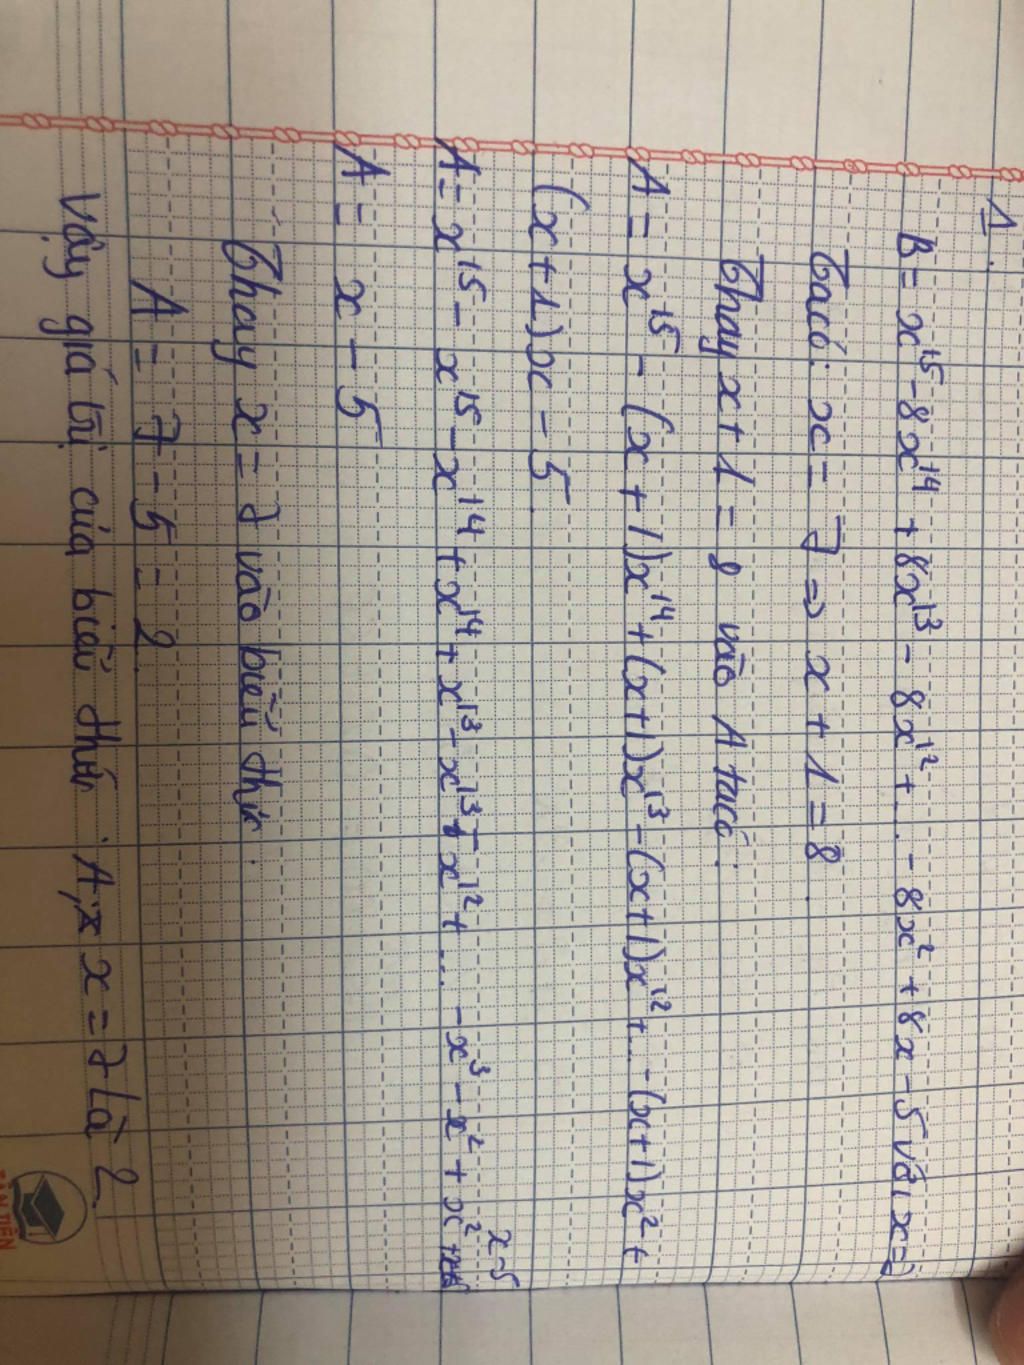 1.
B = x¹⁵ - 8x¹⁴ + 8x¹³ - 8x¹² + ... - 8x² + 8x - 5 với x = 7
Ta có: x = 7 ⇒ x + 1 = 8
Thay x + 1 = 8 vào A ta có:
A = x¹⁵ - (x + 1)x¹⁴ + (x+1)x¹³ - (x+1)x¹² + ... - (x+1)x² +
(x + 1)x - 5
A = x¹⁵ - x¹⁵ - x¹⁴ + x¹⁴ + x¹³ - x¹³ - x¹² + ... - x³ - x² + x² + x - 5
A = x - 5
Thay x = 7 vào biểu thức.
A = 7 - 5 = 2
Vậy giá trị của biểu thức A, x = 7 là 2